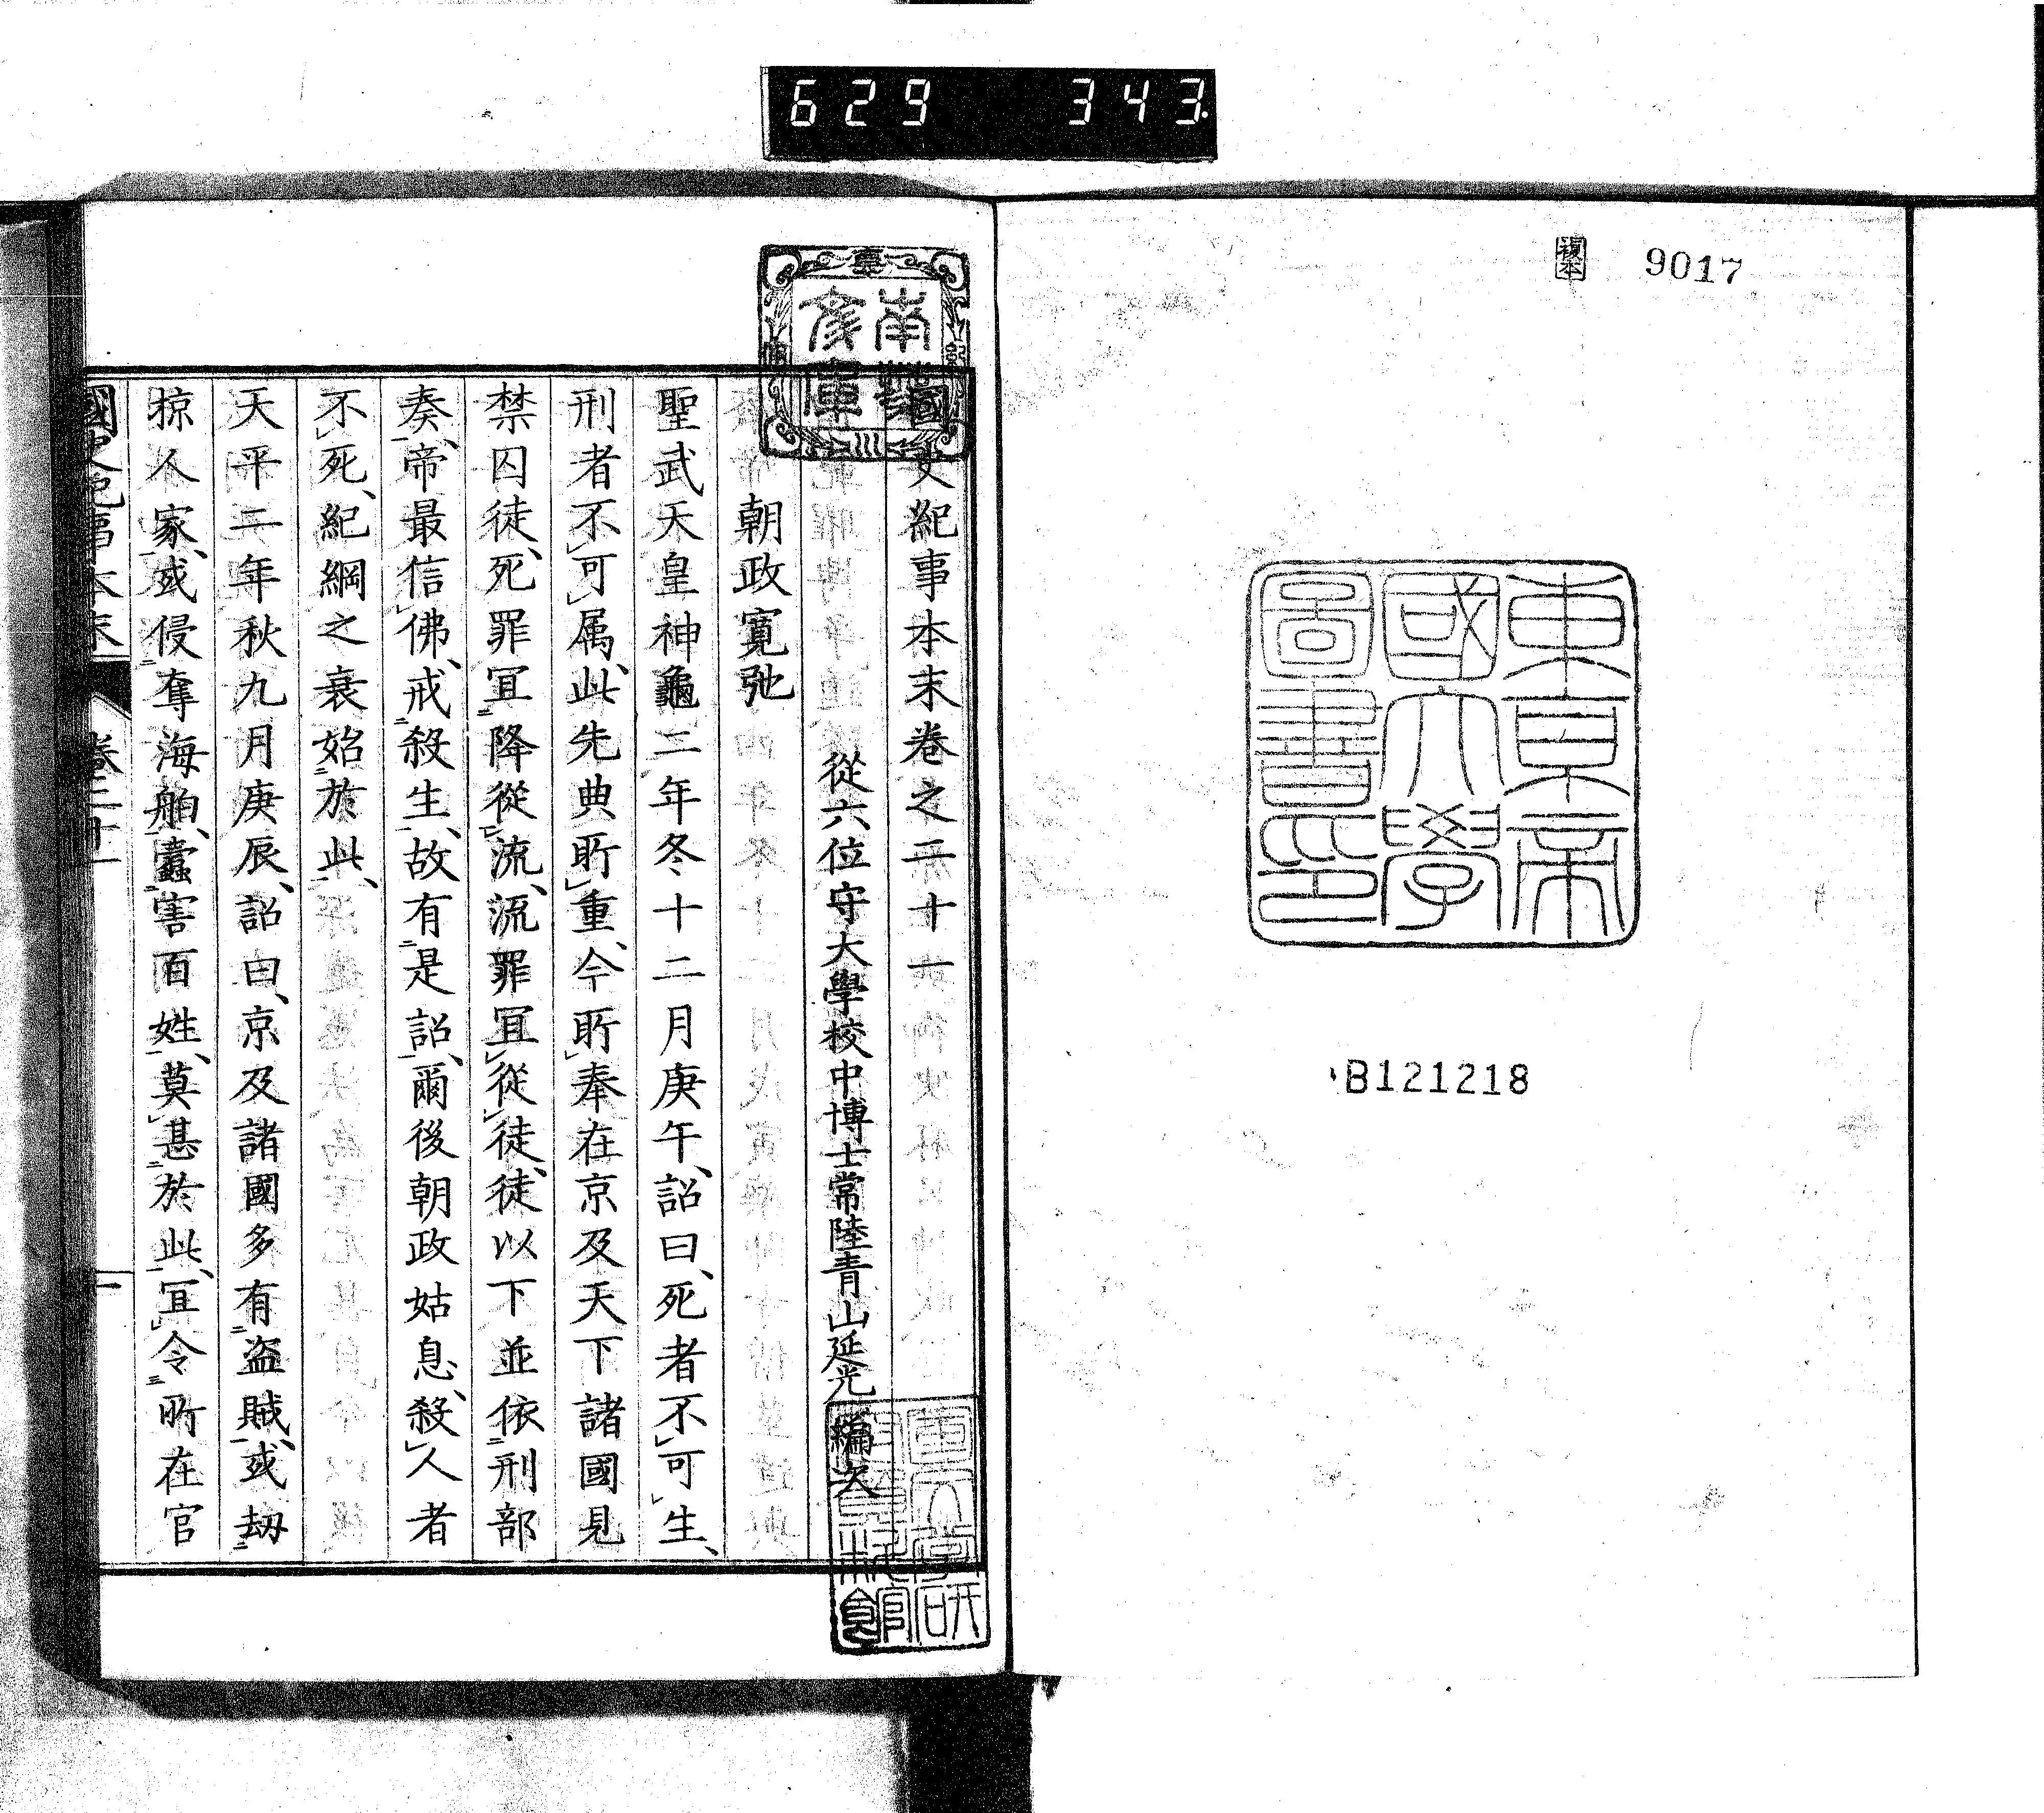 629 343.
複本 9017
東京帝
國大學
圖書印
B121218
國史紀事本末卷之二十一
從六位守大學校中博士常陸青山延光編次
朝政寛弛
聖武天皇神龜二年冬十二月庚午、詔曰、死者不可生、
刑者不可属、此先典所重、今所奉在京及天下諸國見
禁囚徒、死罪冝降從流、流罪冝從徒、徒以下並依刑部
奏、帝最信佛、戒殺生、故有是詔、爾後朝政姑息、殺人者
不死、紀綱之衰始於此、
天平二年秋九月庚辰、詔曰、京及諸國多有盗賊、或劫
掠人家、或侵奪海舶、蠹害百姓、莫甚於此、冝令所在官
國史紀事本末 卷二十一 一